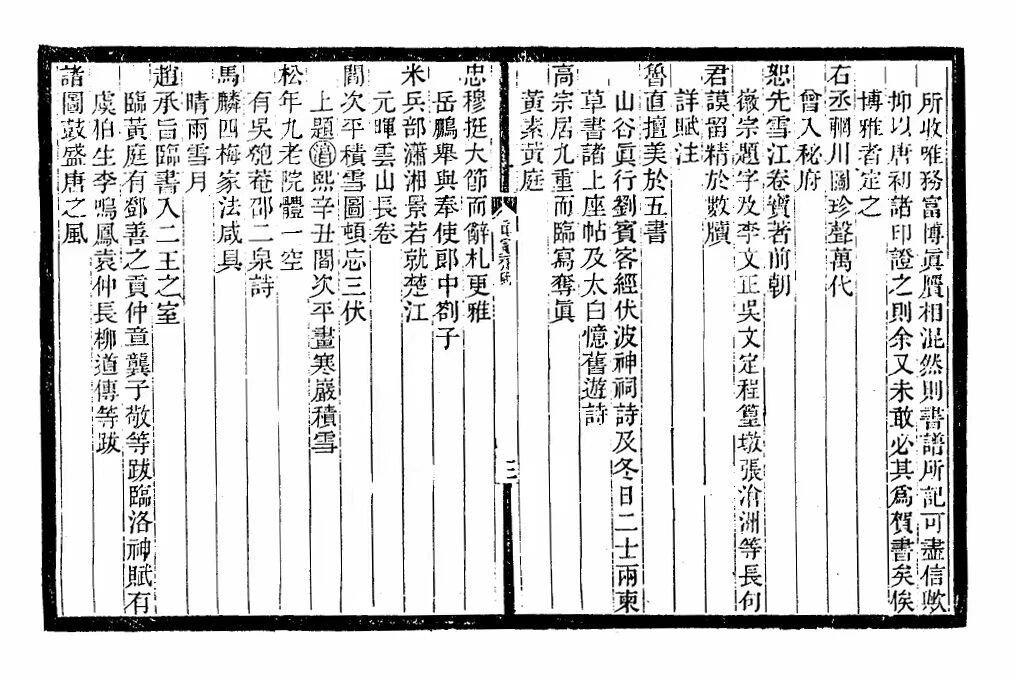 所收唯務富博眞贗相混然則書譜所記可盡信歟
抑以唐利諸印證之則余又未敢必其爲賀書矣俟
博雅者定之
右丞輞川圖珍聲萬代
曾入秘府
恕先雪江卷寶著前朝
徽宗題字及李文正吳文定程篁墩張滄洲等長句
君謨留精於數牘
詳賦注
魯直擅美於五書
山谷眞行劉賓客經伏波神祠詩及冬日二士兩柬
草書諸上座帖及太白憶舊遊詩
高宗居九重而臨寫奪眞
黃素黃庭
眞賞齋賦
三
忠穆挺大節而辭札更雅
岳鵬舉與奉使郎中劄子
米兵部瀟湘景若就楚江
元暉雲山長卷
閻次平積雪圖頓忘三伏
上題淳熙辛丑閻次平畫寒巖積雪
松年九老院體一空
有吳匏菴邵二泉詩
馬麟四梅家法咸具
晴雨雪月
趙承旨臨書入二王之室
臨黃庭有鄧善之貢仲章龔子敬等跋臨洛神賦有
虞伯生李鳴鳳袁仲長柳道傳等跋
諸圖鼓盛唐之風